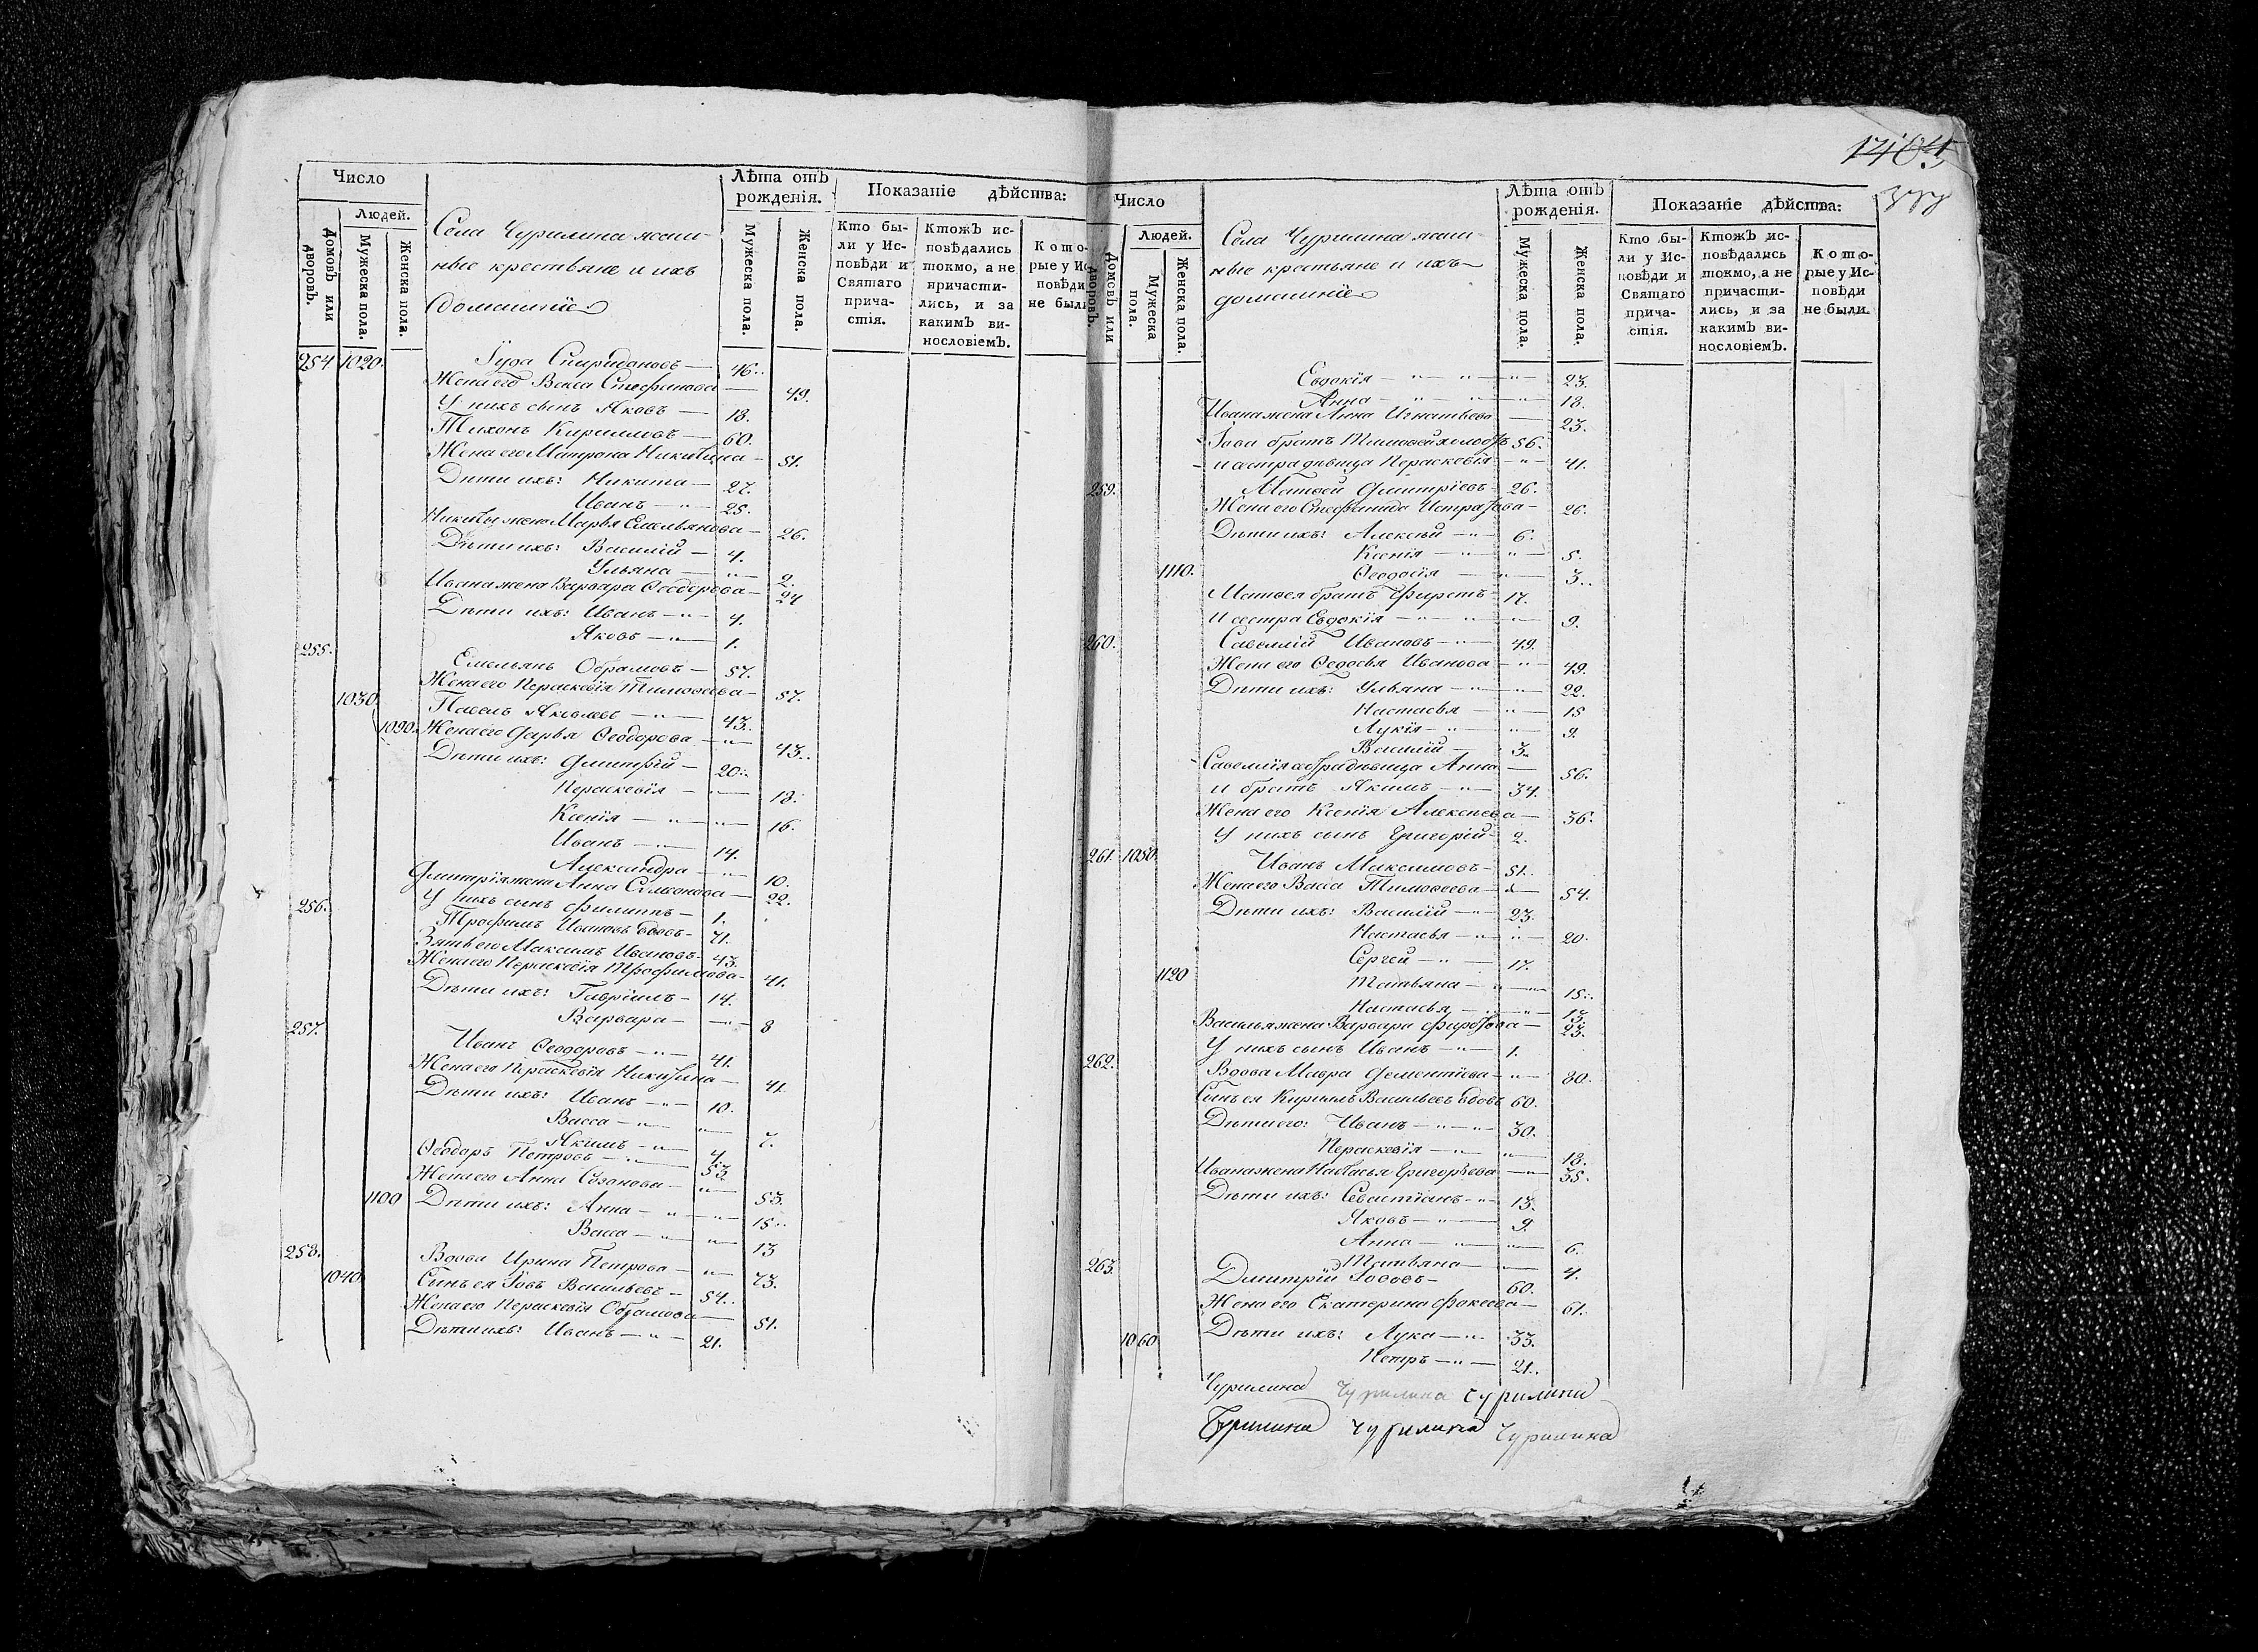 Число
Людей.
Домовъ или дворовъ.
Мужеска пола.
Женска пола.
Села Чурилина ясаш-
ные крестьяне и ихъ
домашніе
Лѣта отъ рожденія.
Мужеска пола.
Женска пола.
Показаніе дѣйства:
Кто были у Исповѣди и Святаго причастія.
Ктожъ исповѣдались токмо, а не причастились, и за какимъ винословіемъ.
Которые у Исповѣди не были
254 1020. Іуда Спиридоновъ — 46.
Жена его Васса Стефанова — 49.
У нихъ сынъ Яковъ — 18.
Тихонъ Кириловъ — 60.
Жена его Матрона Никитина — 51.
Дѣти ихъ: Никита — 27.
Иванъ — " — 25.
Никиты жена Марья Емельянова — 26.
Дѣти ихъ: Василій — 4.
Ульяна — " — 2.
Ивана жена Варвара Ѳеодорова — 24
Дѣти ихъ: Иванъ — " — 4.
Яковъ — " — 1.
255. Емельянъ Обрамовъ — 57.
Жена его Пераскевія Тимофеева — 57.
1030. Павелъ Яковлевъ — " — 43.
1090. Жена его Дарья Ѳеодорова — " — 43.
Дѣти ихъ: Дмитрій — 20.
Пераскевія — " — 18.
Ксенія — " — " — 16.
Иванъ — " — 14.
Александра — " — 10.
Дмитрія жена Анна Симонова — 22.
У нихъ сынъ Филиппъ — 1.
256. Трофимъ Ивановъ вдовъ — 71.
Зять его Максимъ Ивановъ — 43.
Жена его Пераскевія Трофимова — 41.
Дѣти ихъ: Гавріилъ — 14.
Варвара — " — 8
257. Иванъ Ѳеодоровъ — " — 41.
Жена его Пераскевія Никитина — 41.
Дѣти ихъ: Иванъ — " — 10.
Васса — " — " — 7.
Якимъ — " — 4.
Ѳеодоръ Петровъ — " — 53
Жена его Анна Созонова — " — 53.
1100 Дѣти ихъ: Анна — " — " — 15.
Васса — " — " — 13
258. Вдова Ирина Петрова — " — 73.
1040. Сынъ ея Іовъ Васильевъ — 54.
Жена его Пераскевія Обрамова — 51.
Дѣти ихъ: Иванъ — " — 21.
Число
Людей.
Домовъ или дворовъ.
Мужеска пола.
Женска пола.
Села Чурилина ясаш-
ные крестьяне и ихъ
домашніе
Лѣта отъ рожденія.
Мужеска пола.
Женска пола.
Показаніе дѣйства:
Кто были у Исповѣди и Святаго причастія.
Ктожъ исповѣдались токмо, а не причастились, и за какимъ винословіемъ.
Которые у Исповѣди не были.
Евдокія — " — " — " — 23.
Анна — " — " — " — 18.
Ивана жена Анна Игнатьева — 23.
Іова братъ Тимофей 56.
Пераскевія — " — 41.
259. Матвей Дмитріевъ — 26.
Жена его Стефанида — 26.
Дѣти ихъ: Алексѣй — " — 6.
Ксенія — " — " — 5.
1110. Ѳеодосія — " — 3.
Матвея братъ — 17.
И сестра Евдокія — " — " — " — 9.
260. Савелій Ивановъ — " — 49.
Жена его Ѳедосья Иванова — " — 49.
Дѣти ихъ: Ульяна — " — " — 22.
Настасья — " — 15
Лукія — " — " — 9.
Василій — 3.
Савелія Анна — 56.
и братъ Якимъ — " — 34.
Жена его Ксенія Алексѣева — 36.
У нихъ сынъ Григорій — 2.
261. 1050. Иванъ Максимовъ — 51.
Жена его Васса Тимофеева — 54.
Дѣти ихъ: Василій — " — 23.
Настасья — " — " — 20.
Сергей — " — 17.
1120 Татьяна — " — " — 15.
Настасья — " — " — 13.
Василья жена Варвара — 23.
У нихъ сынъ Иванъ — " — 1.
262. Вдова Мавра Дементіева — " — 80.
Сынъ ея Кирилъ Васильевъ вдовъ 60.
Дѣти его: Иванъ — " — " — 30.
Пераскевія — " — " — 18.
Ивана жена Настасья Григорьева — " — 35.
Дѣти ихъ: Севастіанъ — " — 13.
Яковъ — " — 9.
Анна — " — " — 6.
Татьяна — " — 4.
263. Дмитрій — 60.
Жена его Екатерина Фокеева — 61.
1060 Дѣти ихъ: Лука — " — 33.
Петръ — " — 21.
Чурилина Чурилина Чурилина
Чурилина Чурилина Чурилина